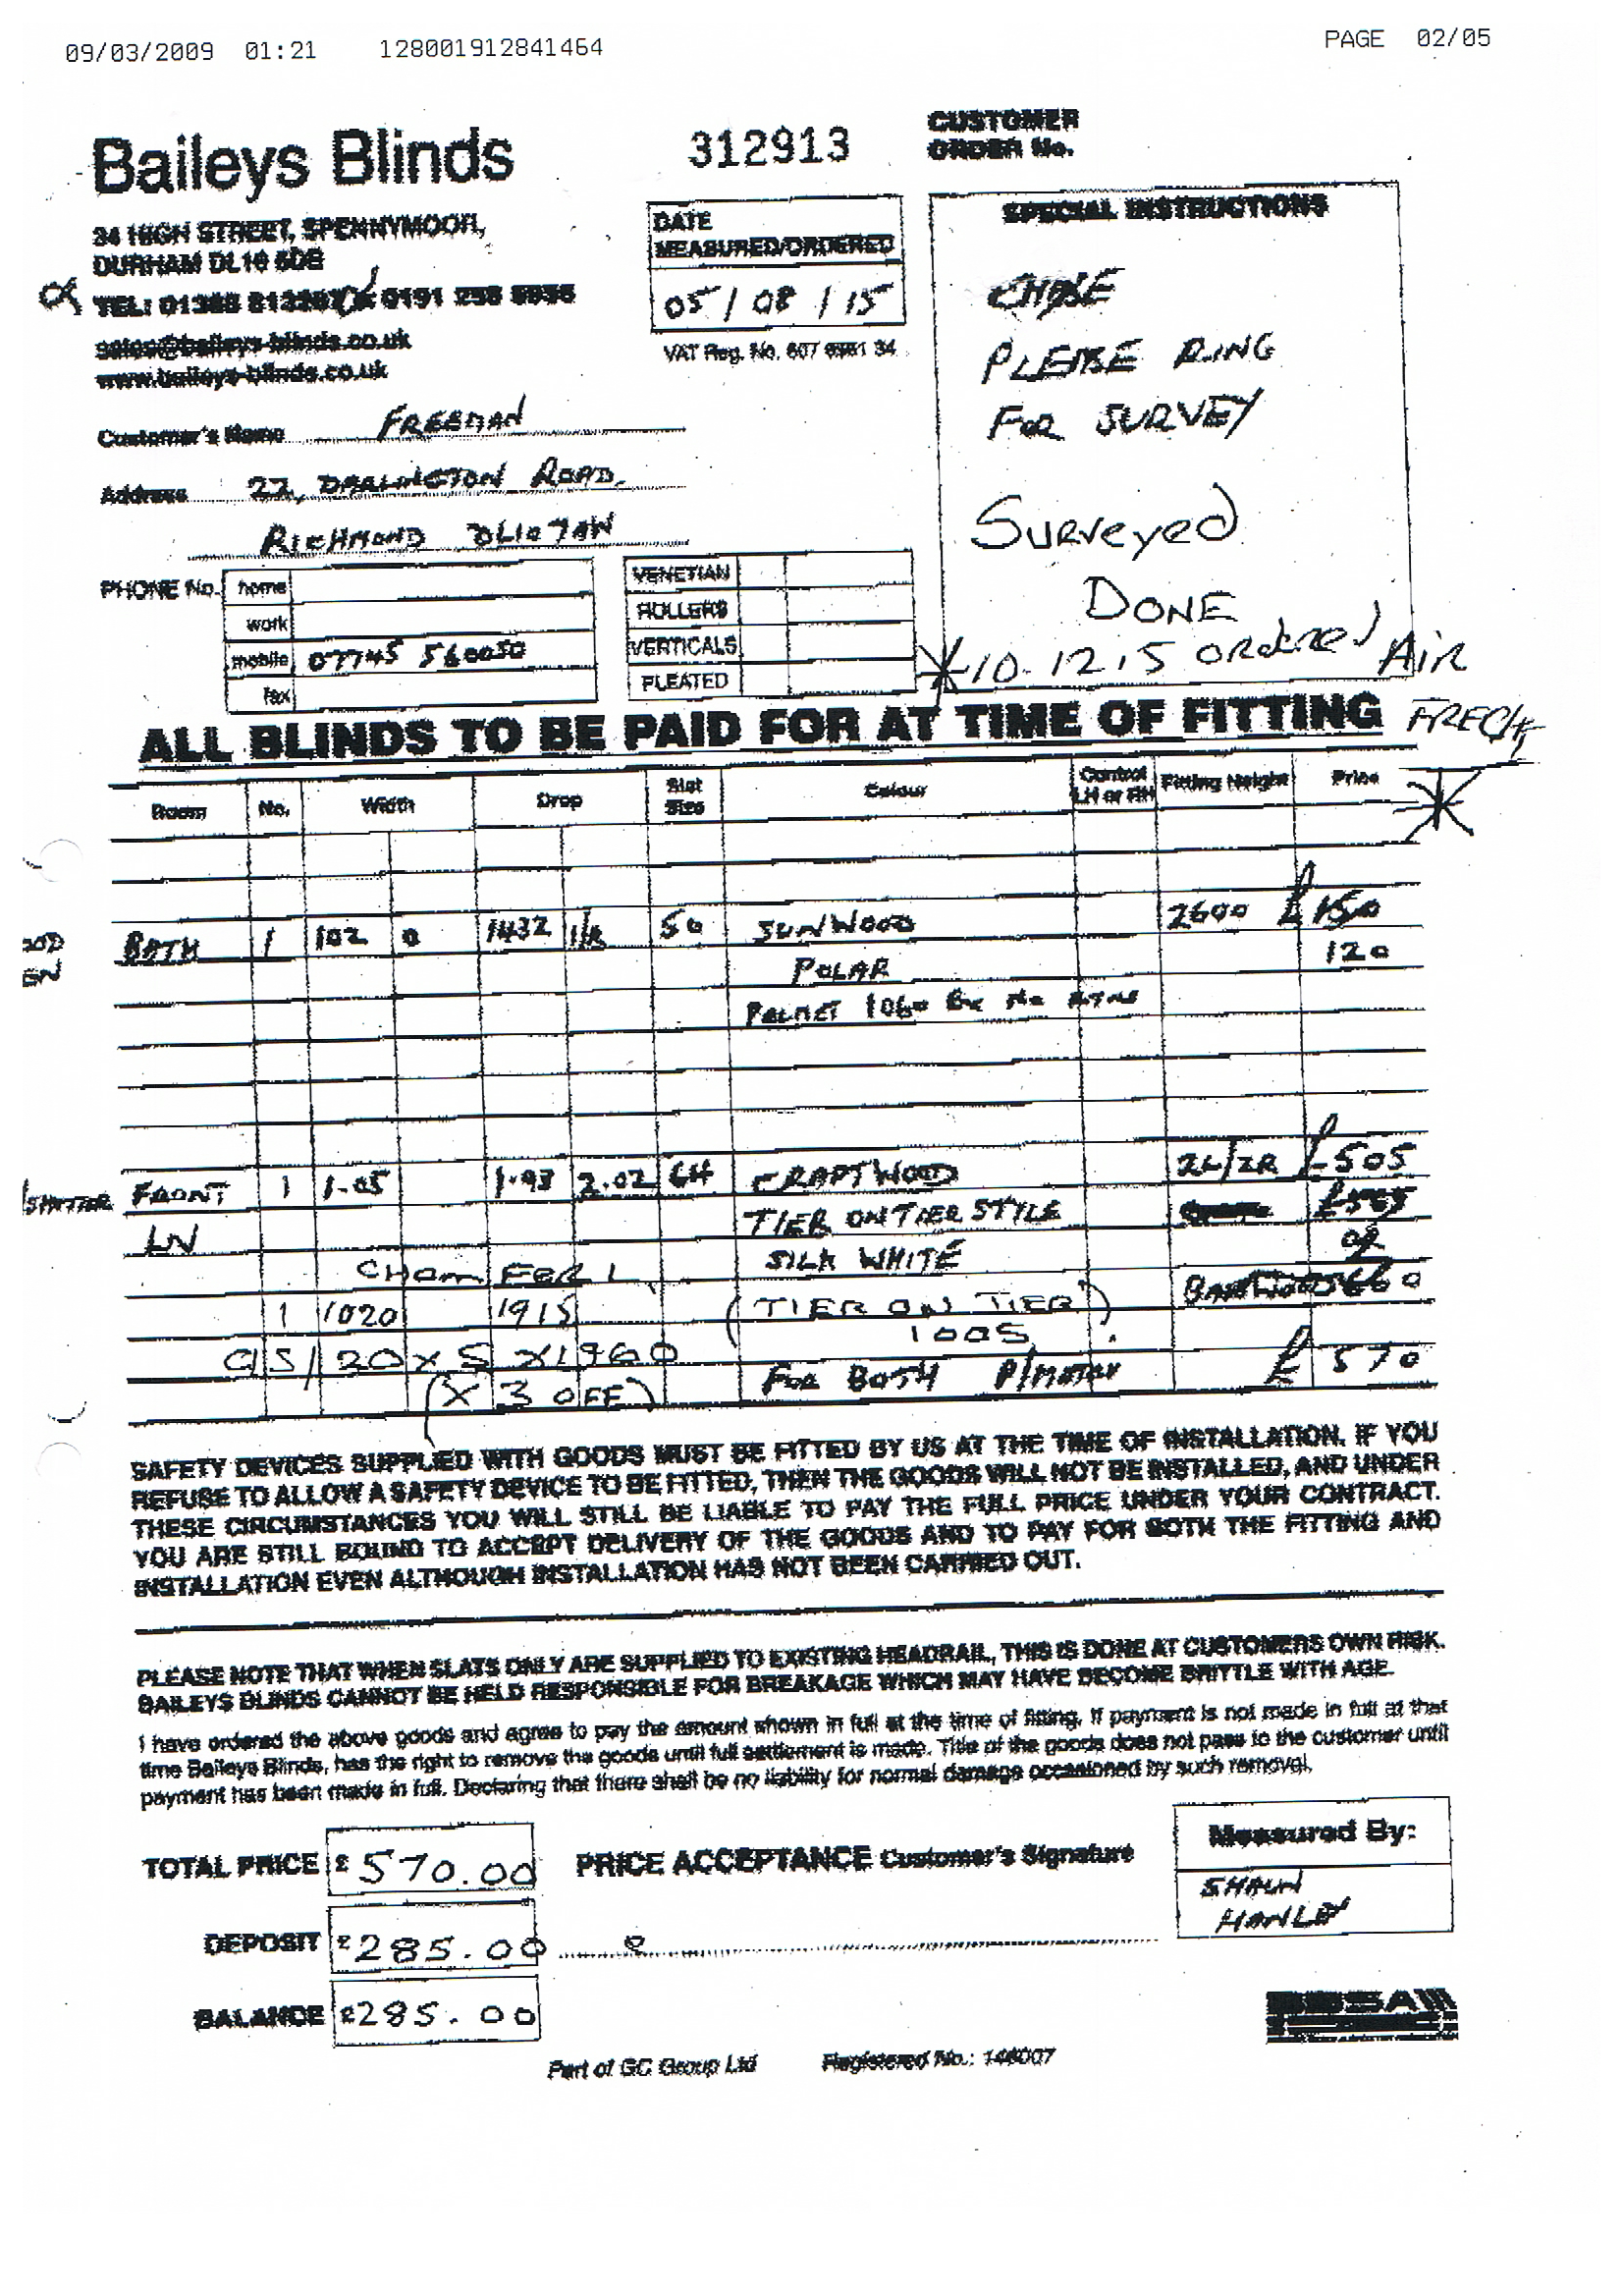 09/03/2009 01:21 128001912841464 PAGE 02/05
Baileys Blinds
312913
CUSTOMER
ORDER No.
34 HIGH STREET, SPENNYMOOR,
DURHAM DL16 6DB
TEL: 01388 0191
sales@baileys-blinds.co.uk
www.baileys-blinds.co.uk
DATE
MEASURED/ORDERED
05/08/15
VAT Reg. No. 34
SPECIAL INSTRUCTIONS
CHASE
PLEASE RING
FOR SURVEY
Surveyed
DONE
10.12.15 ordered AIR
FRECH
Customer's Name FREEMAN
Address 22, DARLINGTON ROAD,
RICHMOND DL10 7AW
PHONE No. home
work
mobile 07745 560050
fax
VENETIAN
ROLLERS
VERTICALS
PLEATED
ALL BLINDS TO BE PAID FOR AT TIME OF FITTING
Room No. Width Drop Slat Size Colour Control LH or RH Fitting Height Price
BATH 1 102 0 1432 50 SUNWOOD 2600 £150
POLAR 120
PELMET 1060
SHUTTER FRONT 1 1.05 1.93 2.02 64 CRAFTWOOD 2L/2R £505
LN TIER ON TIER STYLE
SILK WHITE OR
CHAMFER 1
1 1020 1915 (TIER ON TIER) 660
1005
20 x 5 x 1960
(X 3 OFF) FOR BOTH £ 570
SAFETY DEVICES SUPPLIED WITH GOODS MUST BE FITTED BY US AT THE TIME OF INSTALLATION. IF YOU
REFUSE TO ALLOW A SAFETY DEVICE TO BE FITTED, THEN THE GOODS WILL NOT BE INSTALLED, AND UNDER
THESE CIRCUMSTANCES YOU WILL STILL BE LIABLE TO PAY THE FULL PRICE UNDER YOUR CONTRACT.
YOU ARE STILL BOUND TO ACCEPT DELIVERY OF THE GOODS AND TO PAY FOR BOTH THE FITTING AND
INSTALLATION EVEN ALTHOUGH INSTALLATION HAS NOT BEEN CARRIED OUT.
PLEASE NOTE THAT WHEN SLATS ONLY ARE SUPPLIED TO EXISTING HEADRAIL, THIS IS DONE AT CUSTOMERS OWN RISK.
BAILEYS BLINDS CANNOT BE HELD RESPONSIBLE FOR BREAKAGE WHICH MAY HAVE BECOME BRITTLE WITH AGE.
I have ordered the above goods and agree to pay the amount shown in full at the time of fitting. If payment is not made in full at that
time Baileys Blinds, has the right to remove the goods until full settlement is made. Title of the goods does not pass to the customer until
payment has been made in full. Declaring that there shall be no liability for normal damage occasioned by such removal.
TOTAL PRICE £ 570.00
PRICE ACCEPTANCE Customer's Signature
Measured By:
SHAUN
HANLEY
DEPOSIT £ 285.00
BALANCE £ 285.00
Part of GC Group Ltd Registered No.: 146007